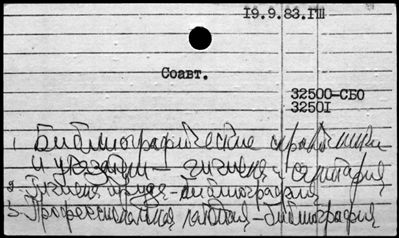 19.9.83.IШ
Соавт.
32500-СБО
32501
1. Библиографические справочники
и указатели - гигиена и санитария
2. Гигиена труда - библиография
3. Профессиональная гигиена - библиография